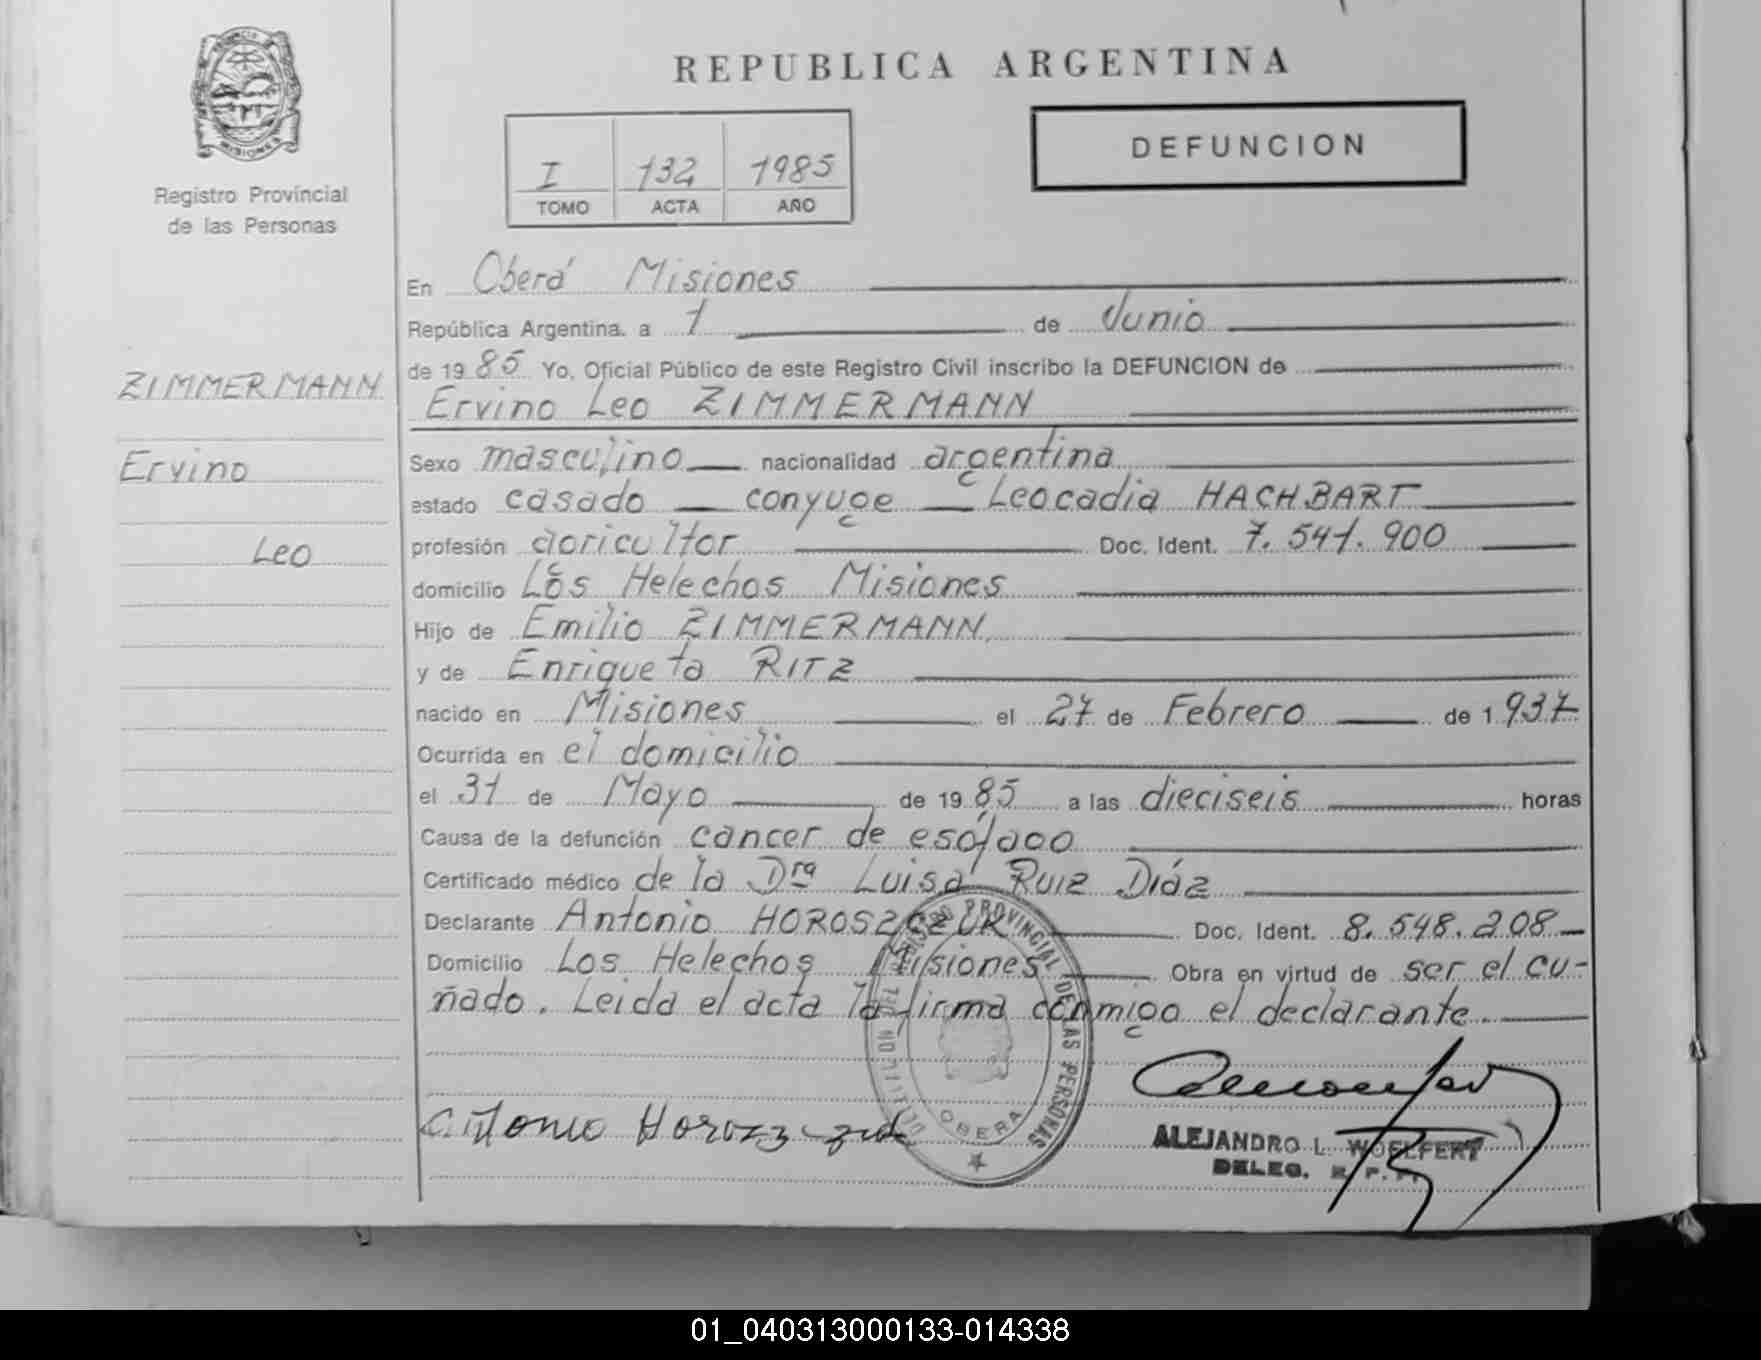 REPUBLICA ARGENTINA
DEFUNCION
I 132 1985
TOMO ACTA AÑO
PROVINCIA DE
MISIONES
Registro Provincial
de las Personas
ZIMMERMANN
Ervino
Leo
En Oberá Misiones
República Argentina, a 1 de Junio
de 1985 Yo, Oficial Público de este Registro Civil inscribo la DEFUNCION de
Ervino Leo ZIMMERMANN
Sexo masculino nacionalidad argentina
estado casado conyuge Leocadia HACHBART
profesión agricultor Doc. Ident. 7.541.900
domicilio Los Helechos Misiones
Hijo de Emilio ZIMMERMANN
y de Enriqueta RITZ
nacido en Misiones el 27 de Febrero de 1937
Ocurrida en el domicilio
el 31 de Mayo de 1985 a las dieciseis horas
Causa de la defunción cancer de esófago
Certificado médico de la Dra Luisa Ruiz Díaz
Declarante Antonio HOROSZCZUK Doc. Ident. 8.548.208
Domicilio Los Helechos Misiones Obra en virtud de ser el cu-
ñado. Leida el acta la firma conmigo el declarante.
PROVINCIAL DE LAS PERSONAS
OBERA
Antonio
ALEJANDRO L. WOELFERT
DELEG. R. P. P.
01_040313000133-014338